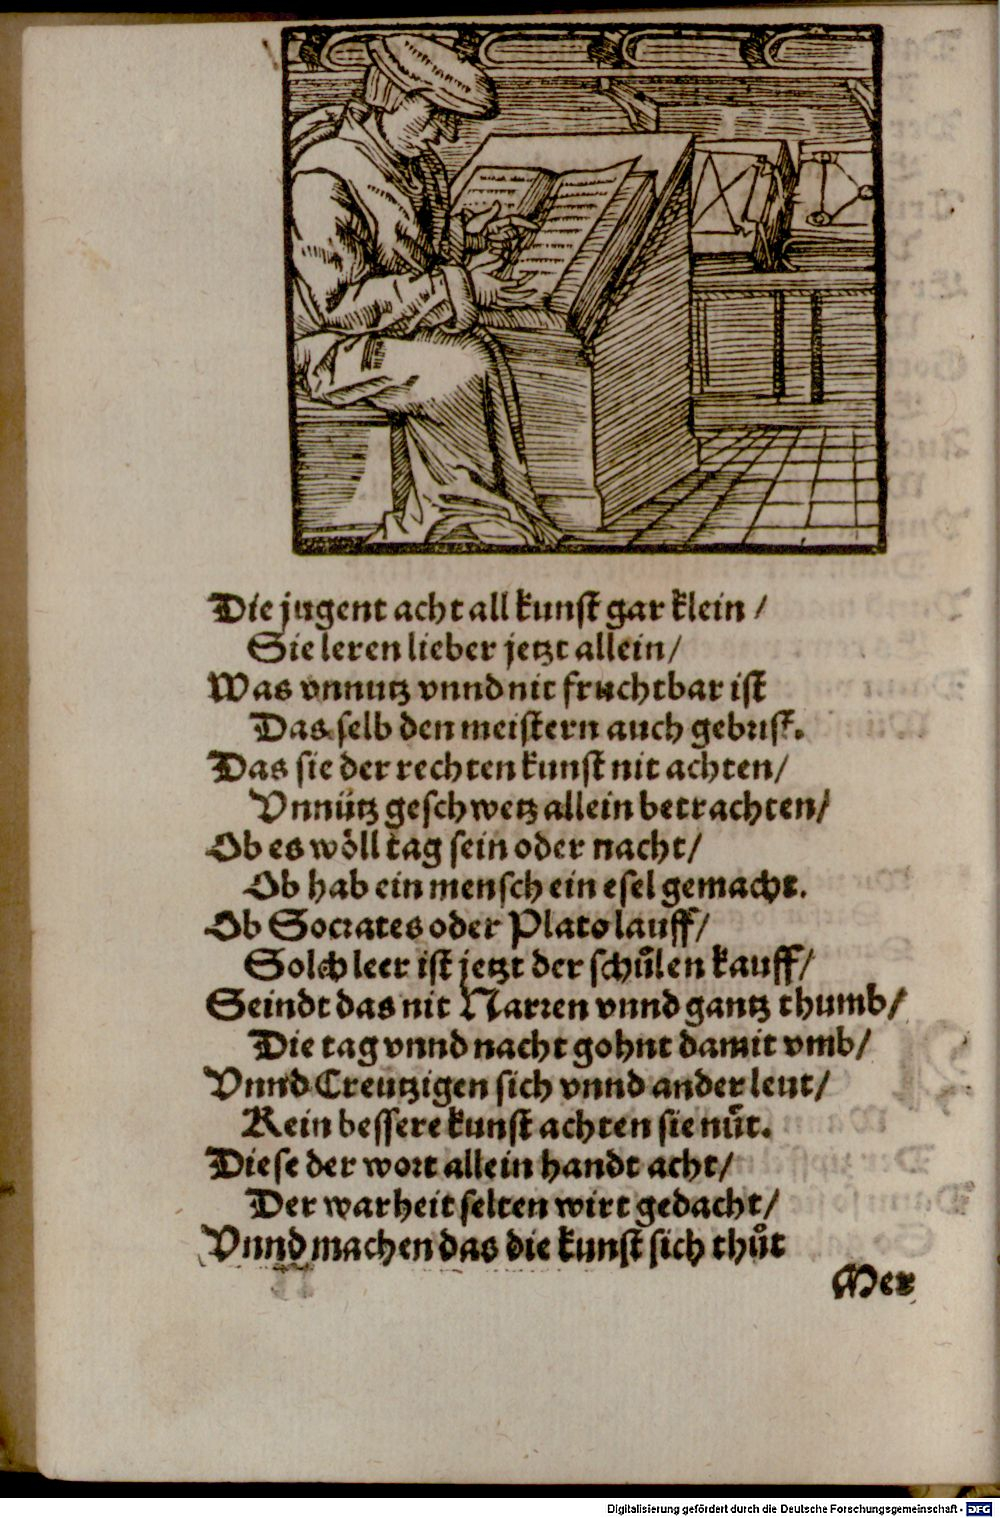 Die jugent acht all kunst gar klein /
Sie leren lieber jetzt allein/
Was vnnutz vnnd nit fruchtbar ist
Das selb den meistern auch gebrist.
Das sie der rechten kunst nit achten/
Vnnütz geschwetz allein betrachten/
Ob es wöll tag sein oder nacht/
Ob hab ein mensch ein esel gemacht.
Ob Socrates oder Plato lauff/
Solch leer ist jetzt der schůlen kauff/
Seindt das nit Narren vnnd gantz thumb/
Die tag vnnd nacht gohnt damit vmb/
Vnnd Creutzigen sich vnnd ander leut/
Kein bessere kunst achten sie nüt.
Diese der wort allein handt acht/
Der warheit selten wirt gedacht/
Vnnd machen das die kunst sich thůt
Mer
Digitalisierung gefördert durch die Deutsche Forschungsgemeinschaft - DFG